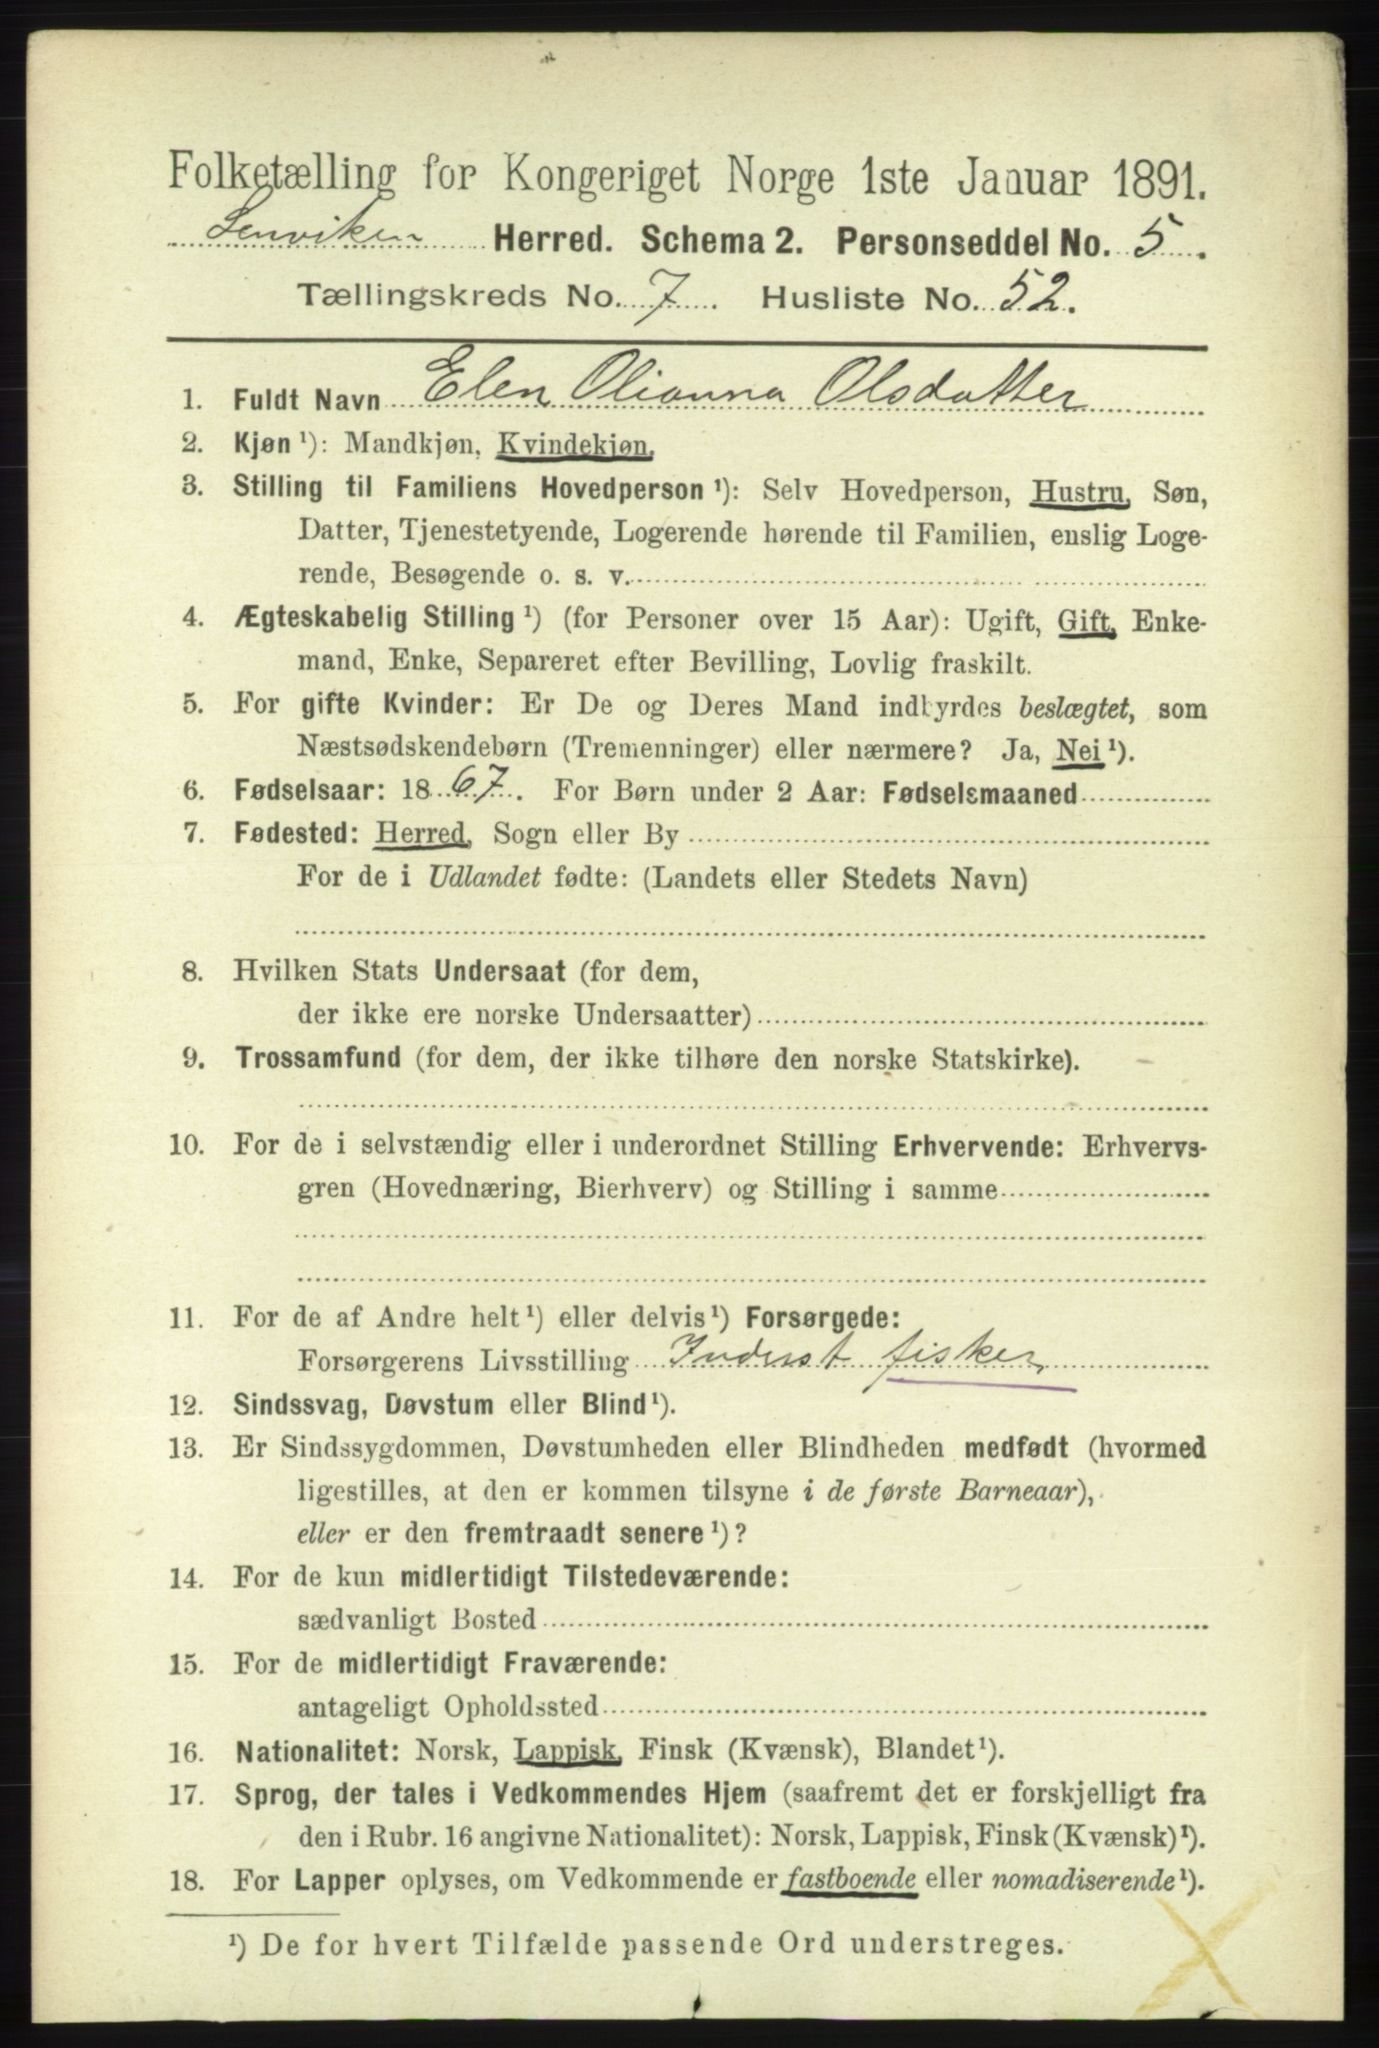 Folketælling for Kongeriget Norge 1ste Januar 1891.
Lenviken Herred. Schema 2. Personseddel No. 5.
Tællingskreds No. 7. Husliste No. 52.
1. Fuldt Navn Elen Olianna Olsdatter
2. Kjøn¹): Mandkjøn, Kvindekjøn.
3. Stilling til Familiens Hovedperson¹): Selv Hovedperson, Hustru, Søn,
Datter, Tjenestetyende, Logerende hørende til Familien, enslig Loge-
rende, Besøgende o. s. v.
4. Ægteskabelig Stilling¹) (for Personer over 15 Aar): Ugift, Gift, Enke-
mand, Enke, Separeret efter Bevilling, Lovlig fraskilt.
5. For gifte Kvinder: Er De og Deres Mand indbyrdes beslægtet, som
Næstsødskendebørn (Tremenninger) eller nærmere? Ja, Nei¹).
6. Fødselsaar: 1867. For Børn under 2 Aar: Fødselsmaaned
7. Fødested: Herred, Sogn eller By
For de i Udlandet fødte: (Landets eller Stedets Navn)
8. Hvilken Stats Undersaat (for dem,
der ikke ere norske Undersaatter)
9. Trossamfund (for dem, der ikke tilhøre den norske Statskirke).
10. For de i selvstændig eller i underordnet Stilling Erhvervende: Erhvervs-
gren (Hovednæring, Bierhverv) og Stilling i samme
11. For de af Andre helt¹) eller delvis¹) Forsørgede:
Forsørgerens Livsstilling Inderst fisker
12. Sindssvag, Døvstum eller Blind¹).
13. Er Sindssygdommen, Døvstumheden eller Blindheden medfødt (hvormed
ligestilles, at den er kommen tilsyne i de første Barneaar),
eller er den fremtraadt senere¹)?
14. For de kun midlertidigt Tilstedeværende:
sædvanligt Bosted
15. For de midlertidigt Fraværende:
antageligt Opholdssted
16. Nationalitet: Norsk, Lappisk, Finsk (Kvænsk), Blandet¹).
17. Sprog, der tales i Vedkommendes Hjem (saafremt det er forskjelligt fra
den i Rubr. 16 angivne Nationalitet): Norsk, Lappisk, Finsk (Kvænsk)¹).
18. For Lapper oplyses, om Vedkommende er fastboende eller nomadiserende¹).
¹) De for hvert Tilfælde passende Ord understreges.